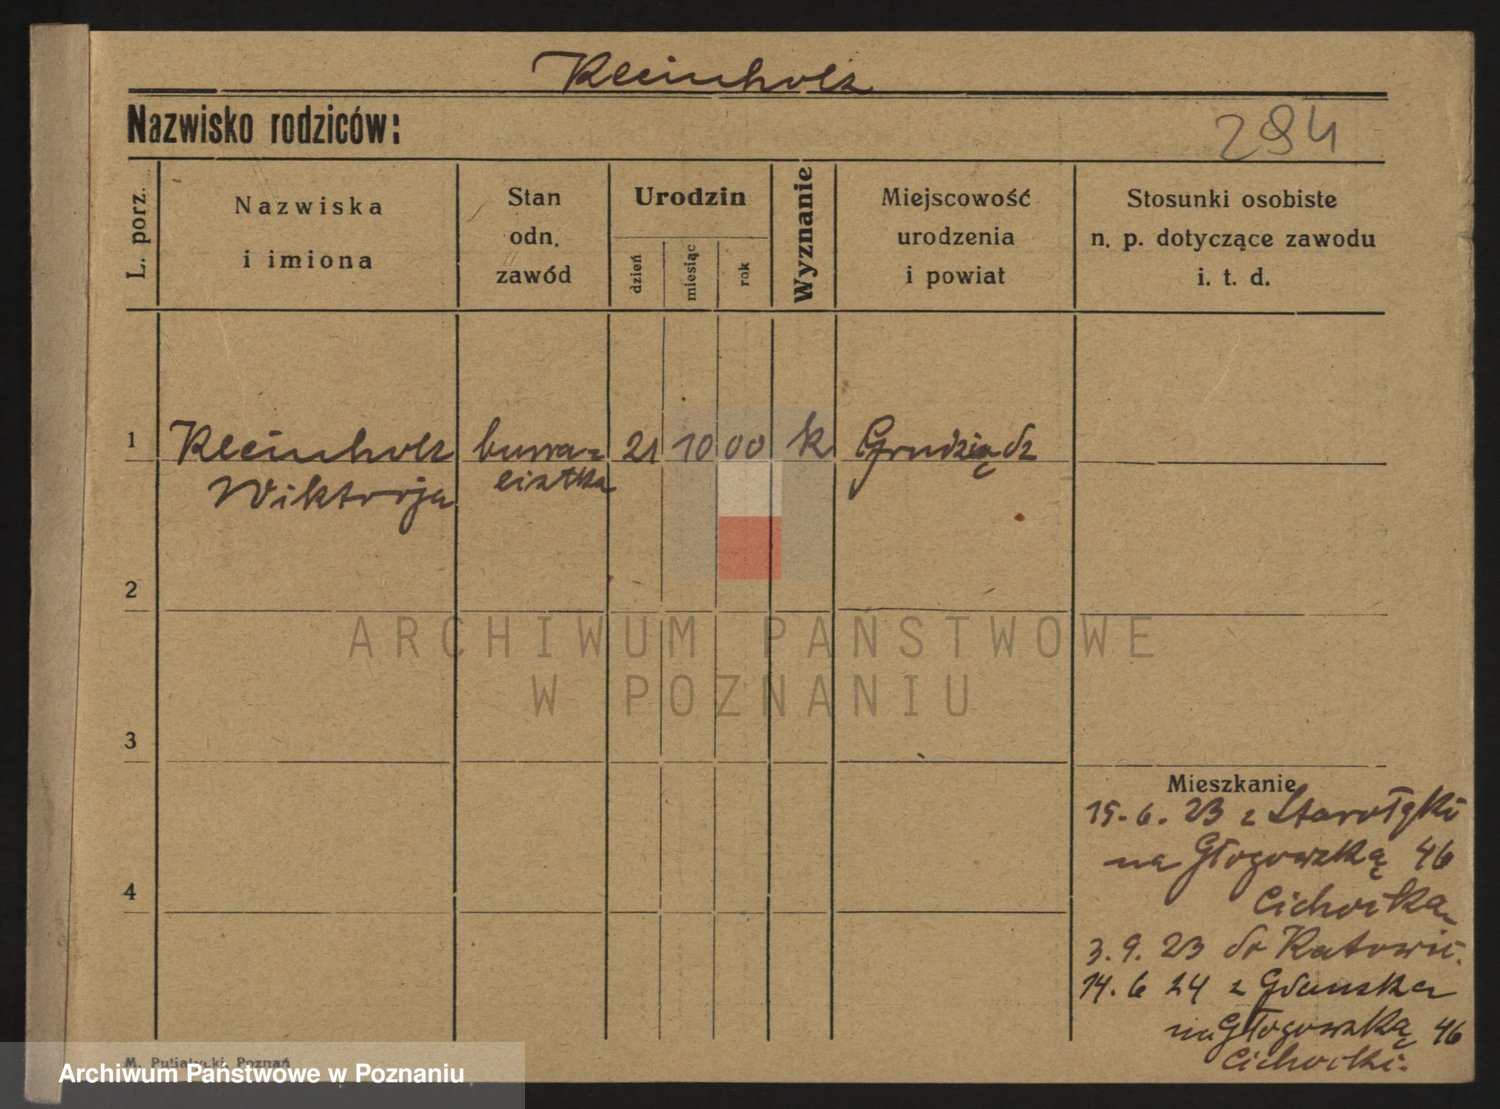 Kleinholz
Nazwisko rodziców:
294
L. porz.
Nazwiska
i imiona
Stan
odn.
zawód
Urodzin
dzień
miesiąc
rok
Wyznanie
Miejscowość
urodzenia
i powiat
Stosunki osobiste
n. p. dotyczące zawodu
i. t. d.
1
Kleinholz
Wiktorja
21
10
00
k
Grudziądz
2
ARCHIWUM PAŃSTWOWE
W POZNANIU
3
Mieszkanie
15. 6. 23 z Starołęki
na Głogowską 46
4
3. 9. 23 do Katowic.
14. 6 24 z Gdańska
na Głogowską 46
Cichocki.
M. Putiatycki, Poznań
Archiwum Państwowe w Poznaniu